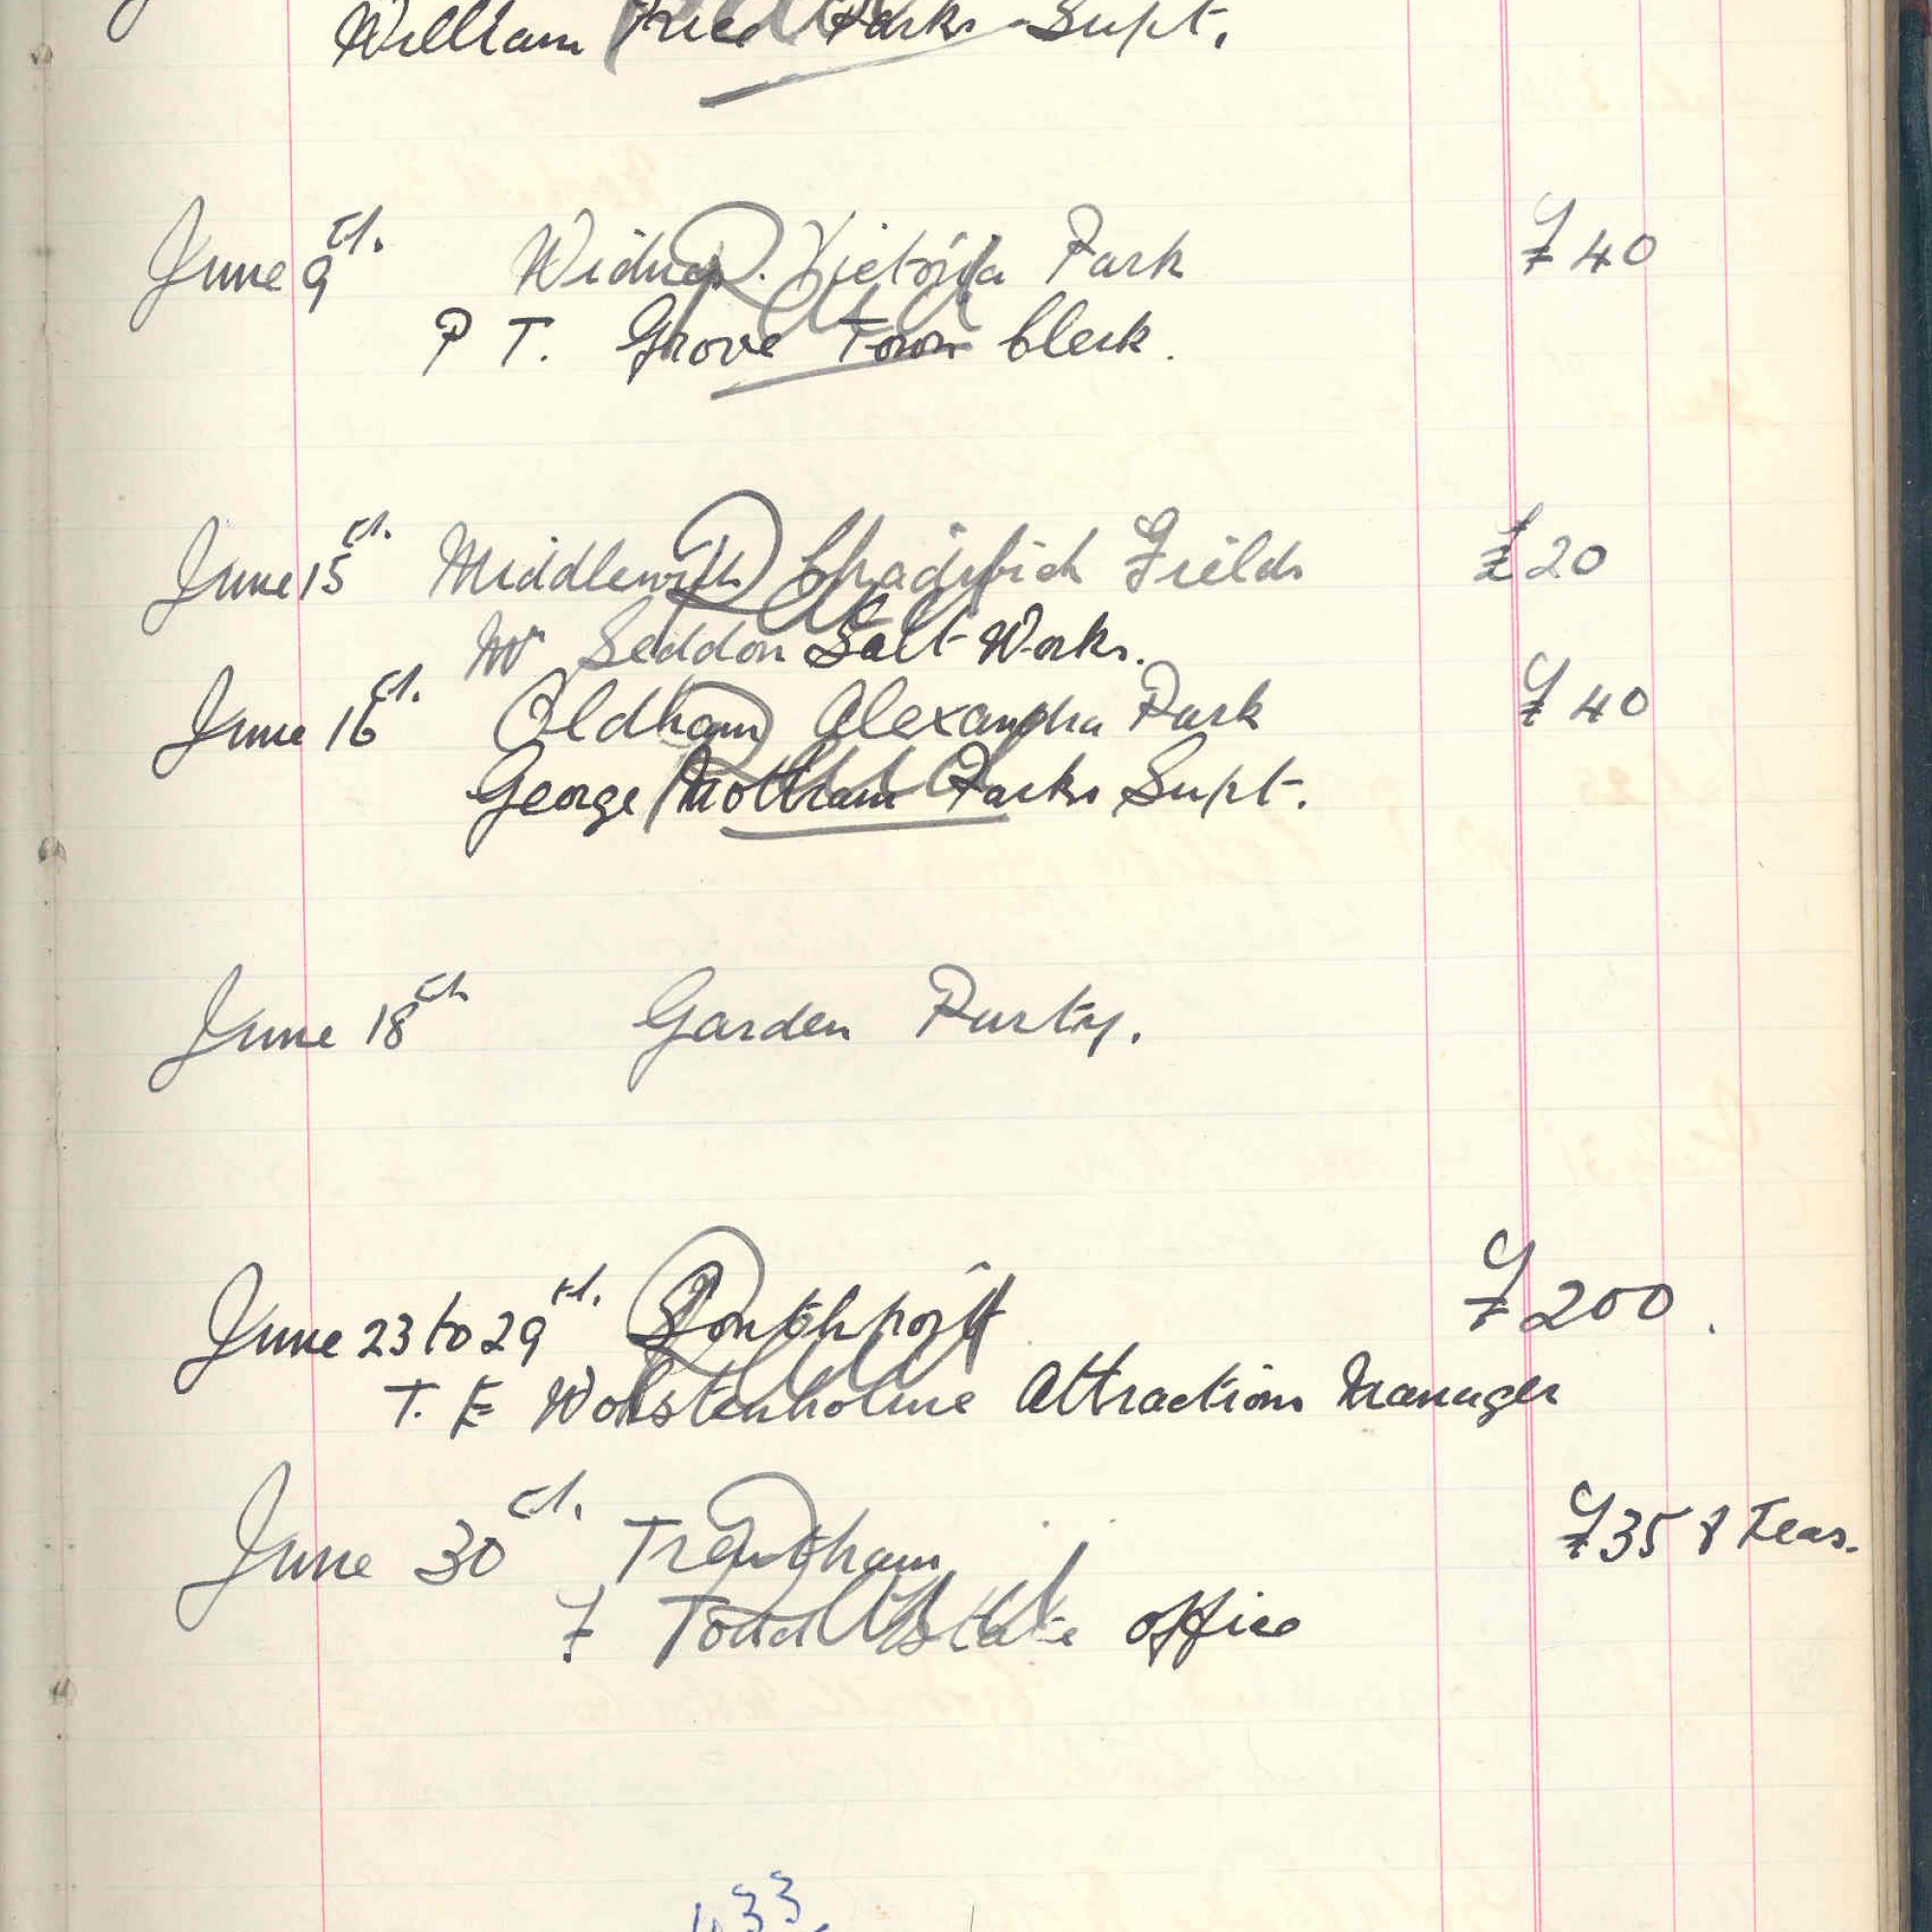 William Price Parks Supt.
June 9th. Widnes. Victoria Park £40
P T. Grove Town Clerk.
Paid
June 15th. Middlewich Fields £20
Mr Seddon Salt Works.
Paid
June 16th. Oldham Alexandra Park £40
George Mottram Parks Supt.
Paid
June 18th Garden Party.
June 23 to 29th. Southport £200.
T. E Wolstenholme Attractions Manager
Paid
June 30th. Trentham £35 & Teas.
F Todd Estate office
Paid
433